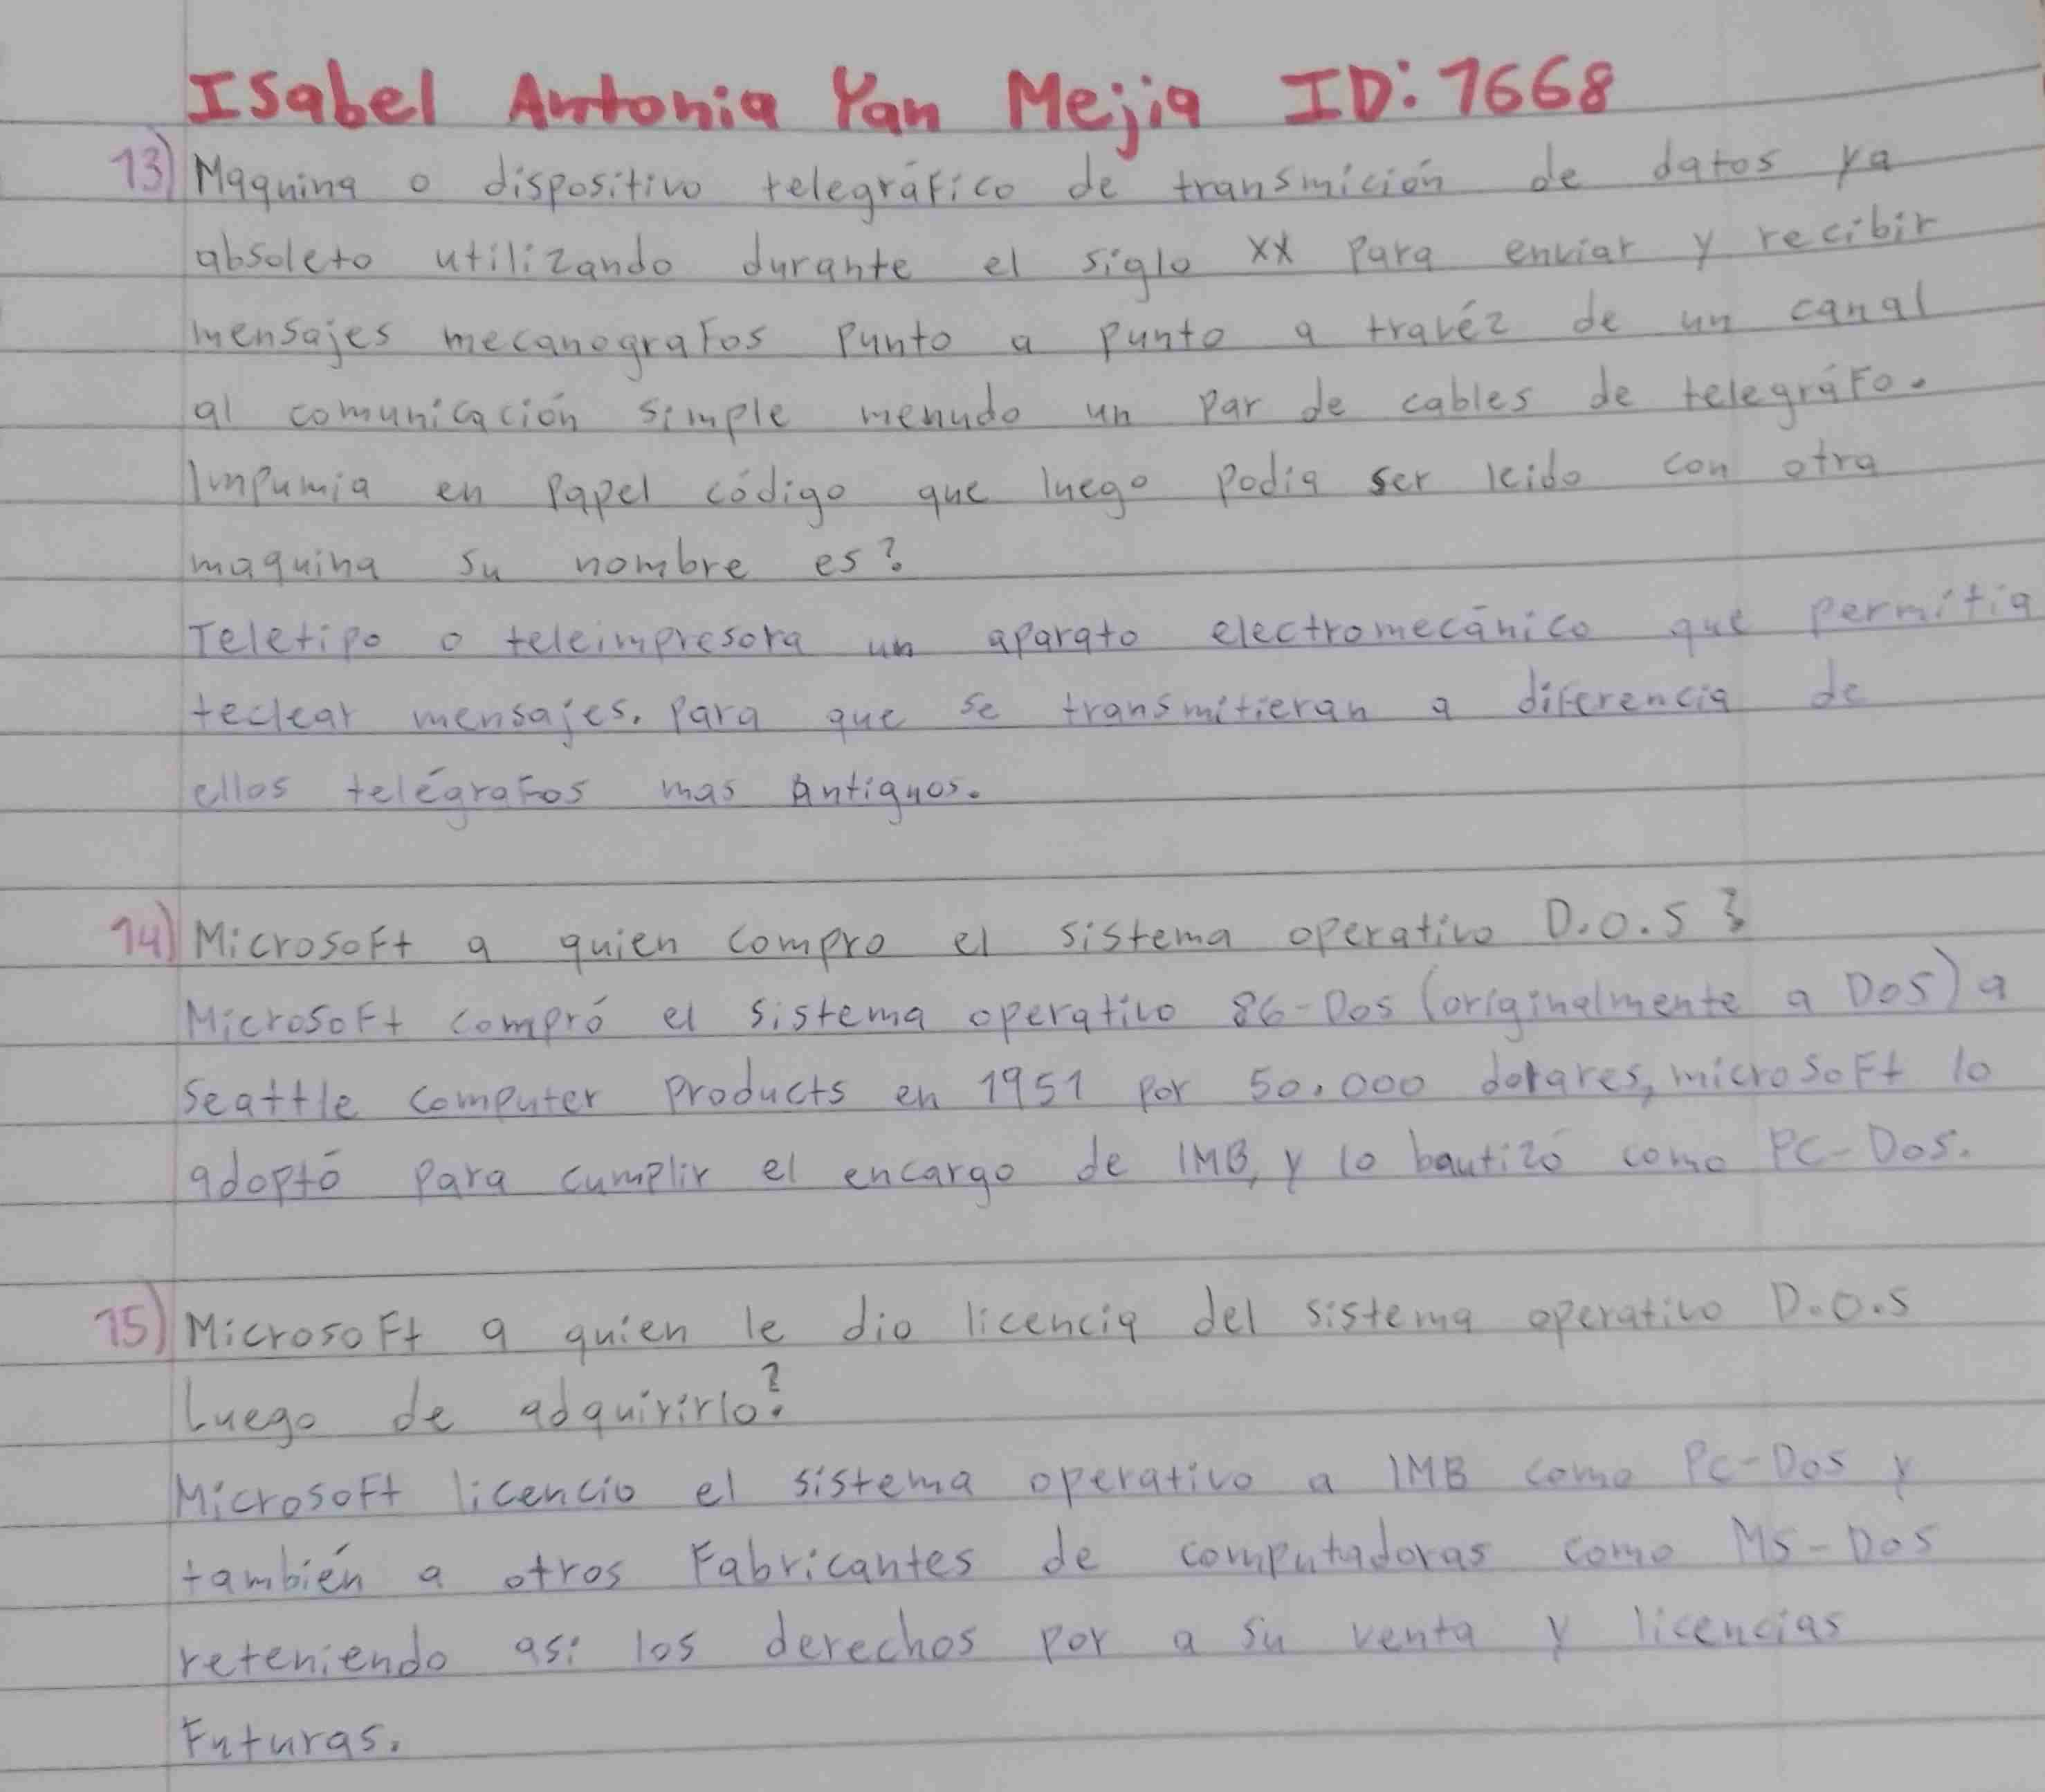 Isabel Antonia Yan Mejia ID: 1668
13) Maquina o dispositivo telegráfico de transmición de datos ya
absoleto utilizando durante el siglo XX para enviar y recibir
mensajes mecanografos punto a punto a travéz de un canal
al comunicación simple menudo un par de cables de telegráfo.
Impumia en papel código que luego podia ser leido con otra
maquina su nombre es?
Teletipo o teleimpresora un aparato electromecánico que permitia
teclear mensajes. para que se transmitieran a diferencia de
ellos telégrafos mas antiguos.
14) Microsoft a quien compro el sistema operativo D.O.S?
Microsoft compró el sistema operativo 86-Dos (originalmente a DOS) a
Seattle computer products en 1951 por 50.000 dorares, microsoft lo
adoptó para cumplir el encargo de IMB, y lo bautizó como PC-Dos.
15) Microsoft a quien le dio licencia del sistema operativo D.O.S
Luego de adquirirlo?
Microsoft licencio el sistema operativo a IMB como Pc-Dos y
también a otros Fabricantes de computadoras como MS-Dos
reteniendo asi los derechos por a su venta y licencias
Futuras.